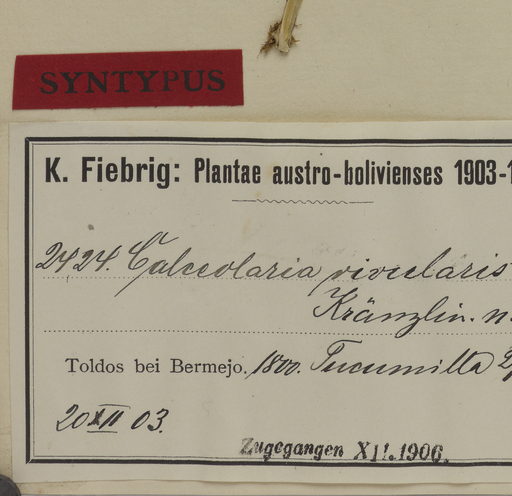 SYNTYPUS
K. Fiebrig: Plantae austro-bolivienses 1903-1
2424. Calceolaria rivularis
Kränzlin. n.
Toldos bei Bermejo. 1800. Tucumilla
20 XII 03.
Zugegangen XII.1906.